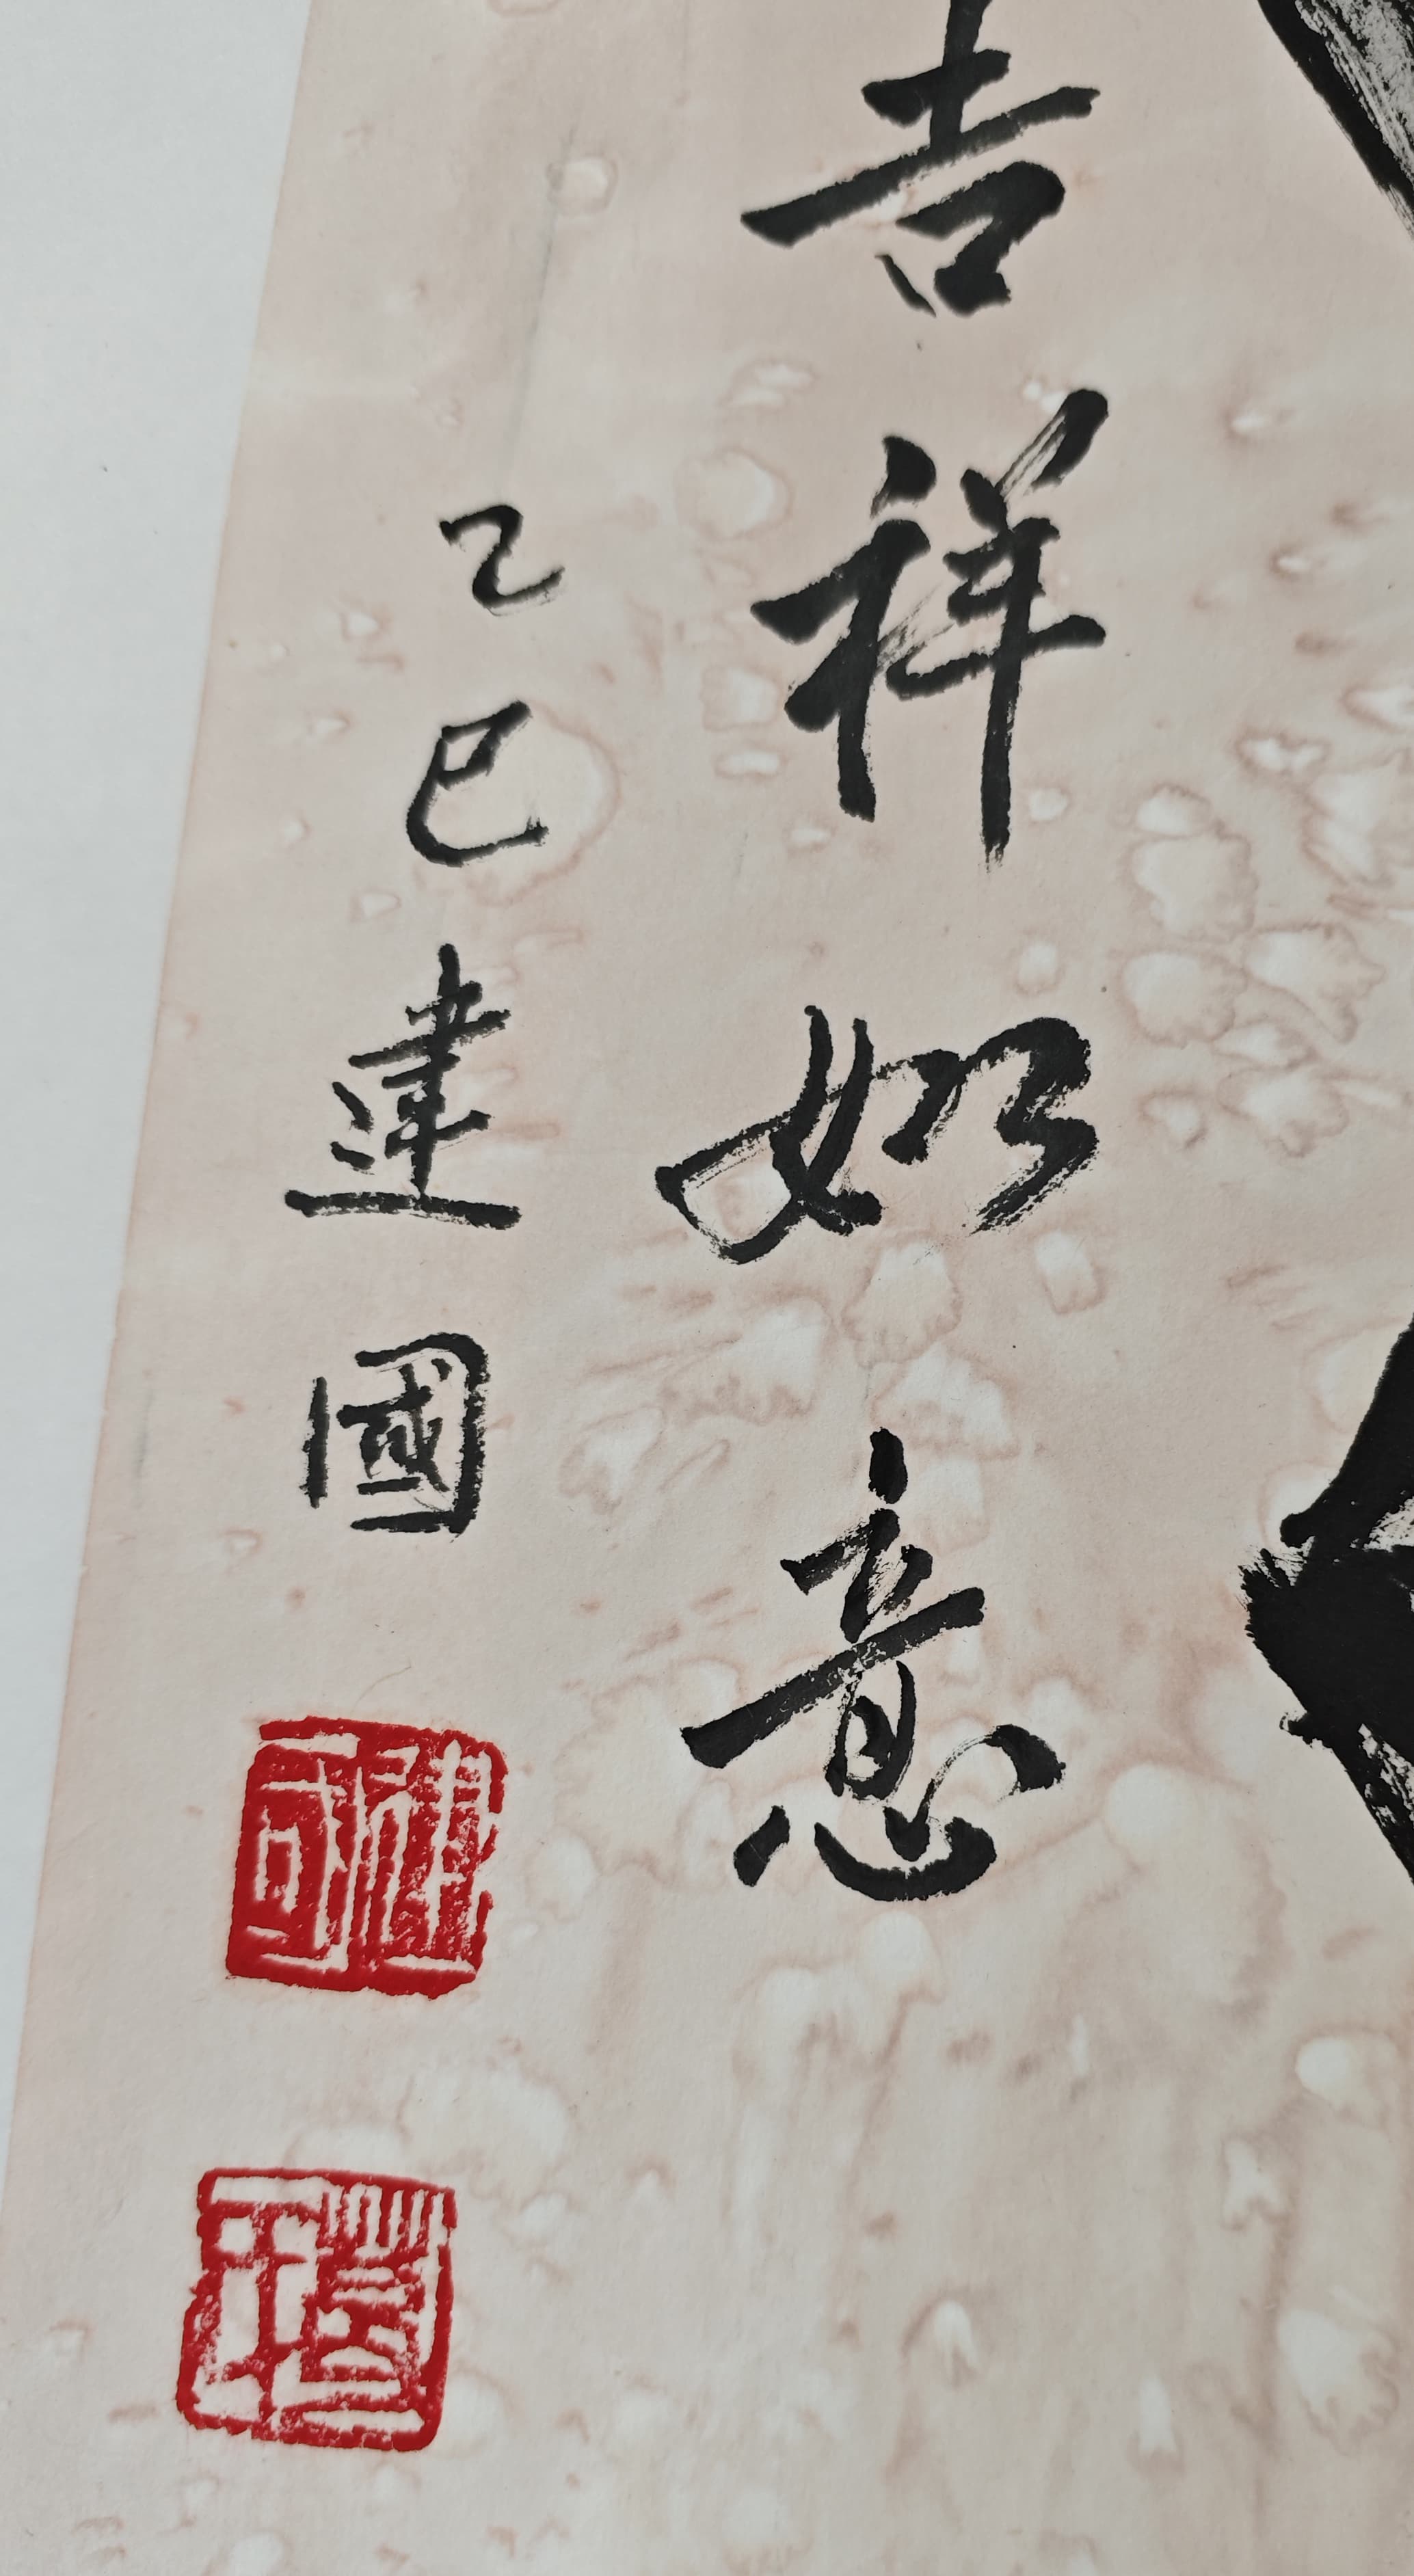 吉祥如意
乙巳建國
建國